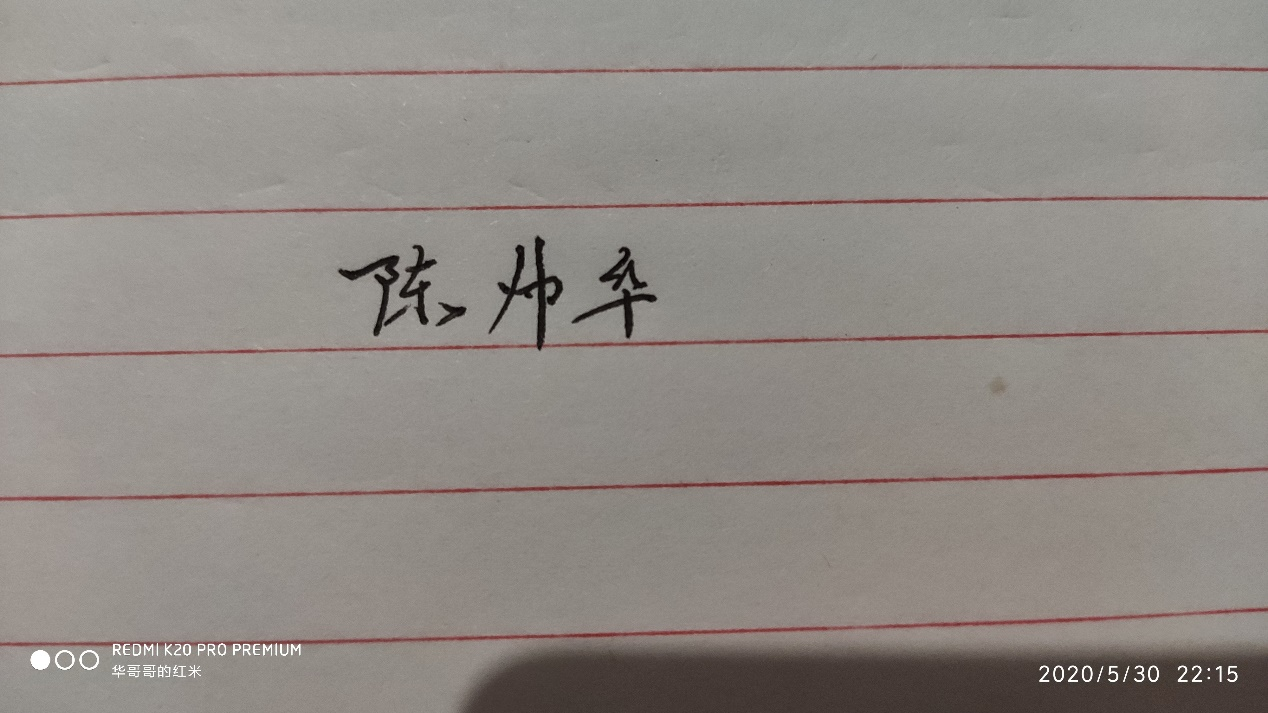 陈帅华
REDMI K20 PRO PREMIUM
华哥哥的红米
2020/5/30 22:15